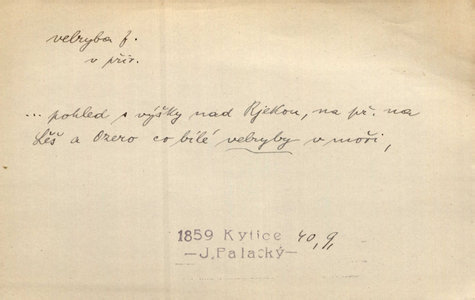 velryba f.
v přir.
... pohled s výšky nad Rjekou, na př. na
Léš a Ozero co bílé velryby v moři,
1859 Kytice 40,9,
—J.Palacký—